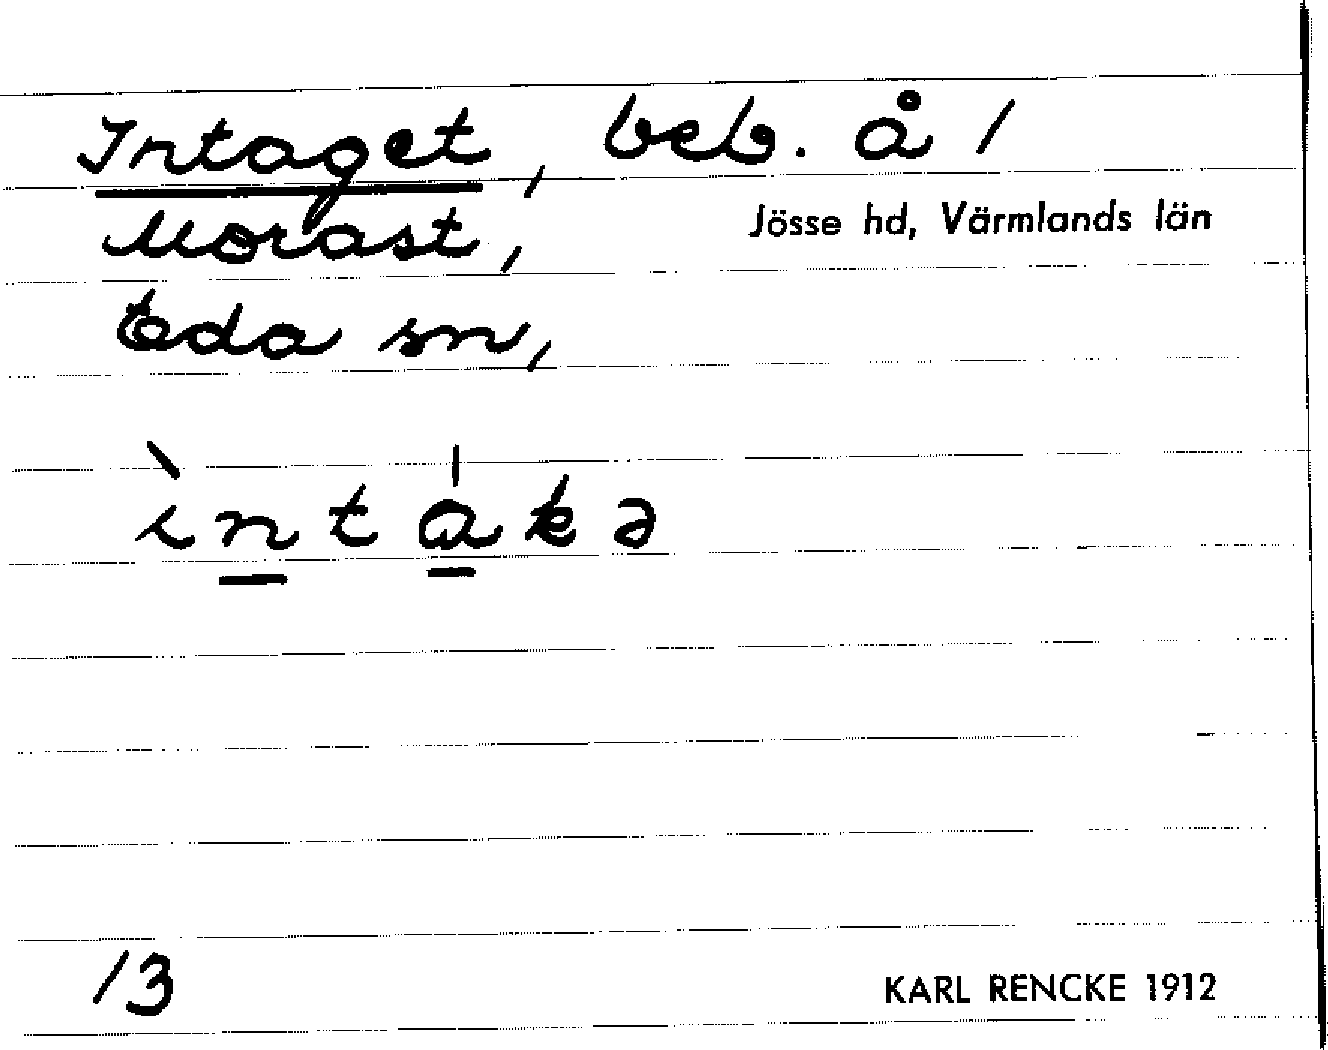 Intaget, beb. å 1
Jösse hd, Värmlands län
Morast,
Eda sn,
ìntakə
13
KARL RENCKE 1912